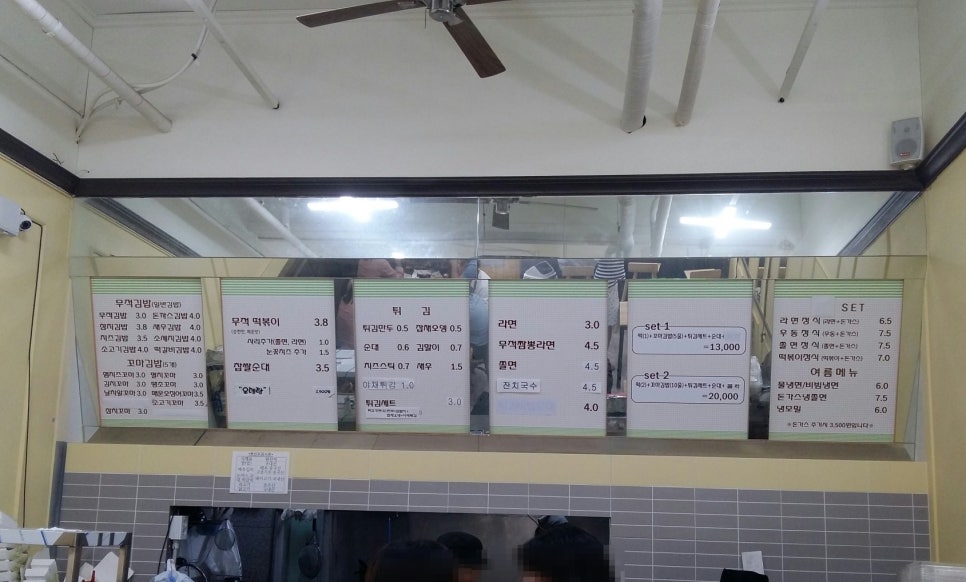 무적김밥(일반김밥)
무적김밥 3.0 돈까스김밥 4.0
참치김밥 3.8 새우김밥 4.0
치즈김밥 3.5 소세지김밥 4.0
소고기김밥 4.0 떡갈비김밥 4.0
꼬마김밥(5개)
멸치꼬마 3.0
김치꼬마 3.0 땡초꼬마 3.0
날치알꼬마 3.0 매운오징어꼬마 3.5
소고기꼬마 3.5
참치꼬마 3.0
무적 떡볶이 3.8
사리추가(쫄면, 라면) 1.0
눈꽃치즈 추가 1.5
찹쌀순대 3.5
튀 김
튀김만두 0.5 잡채오뎅 0.5
순대 0.6 김말이 0.7
치즈스틱 0.7 새우 1.5
야채튀김 1.0
튀김세트 3.0
라면 3.0
무적짬뽕라면 4.5
쫄면 4.5
잔치국수 4.5
4.0
set 1
떡(1)+꼬마김밥(5줄)+튀김세트+순대+
=13,000
set 2
떡(2)+꼬마김밥(10줄)+튀김세트+순대+
=20,000
SET
라면정식 (라면+돈가스) 6.5
우동정식 (우동+돈가스) 7.5
쫄면정식 (쫄면+돈가스) 7.5
떡볶이정식 (떡볶이+돈가스) 7.0
여름메뉴
물냉면/비빔냉면 6.0
돈가스냉쫄면 7.5
냉모밀 6.0
※돈가스 추가시 3,500원입니다※